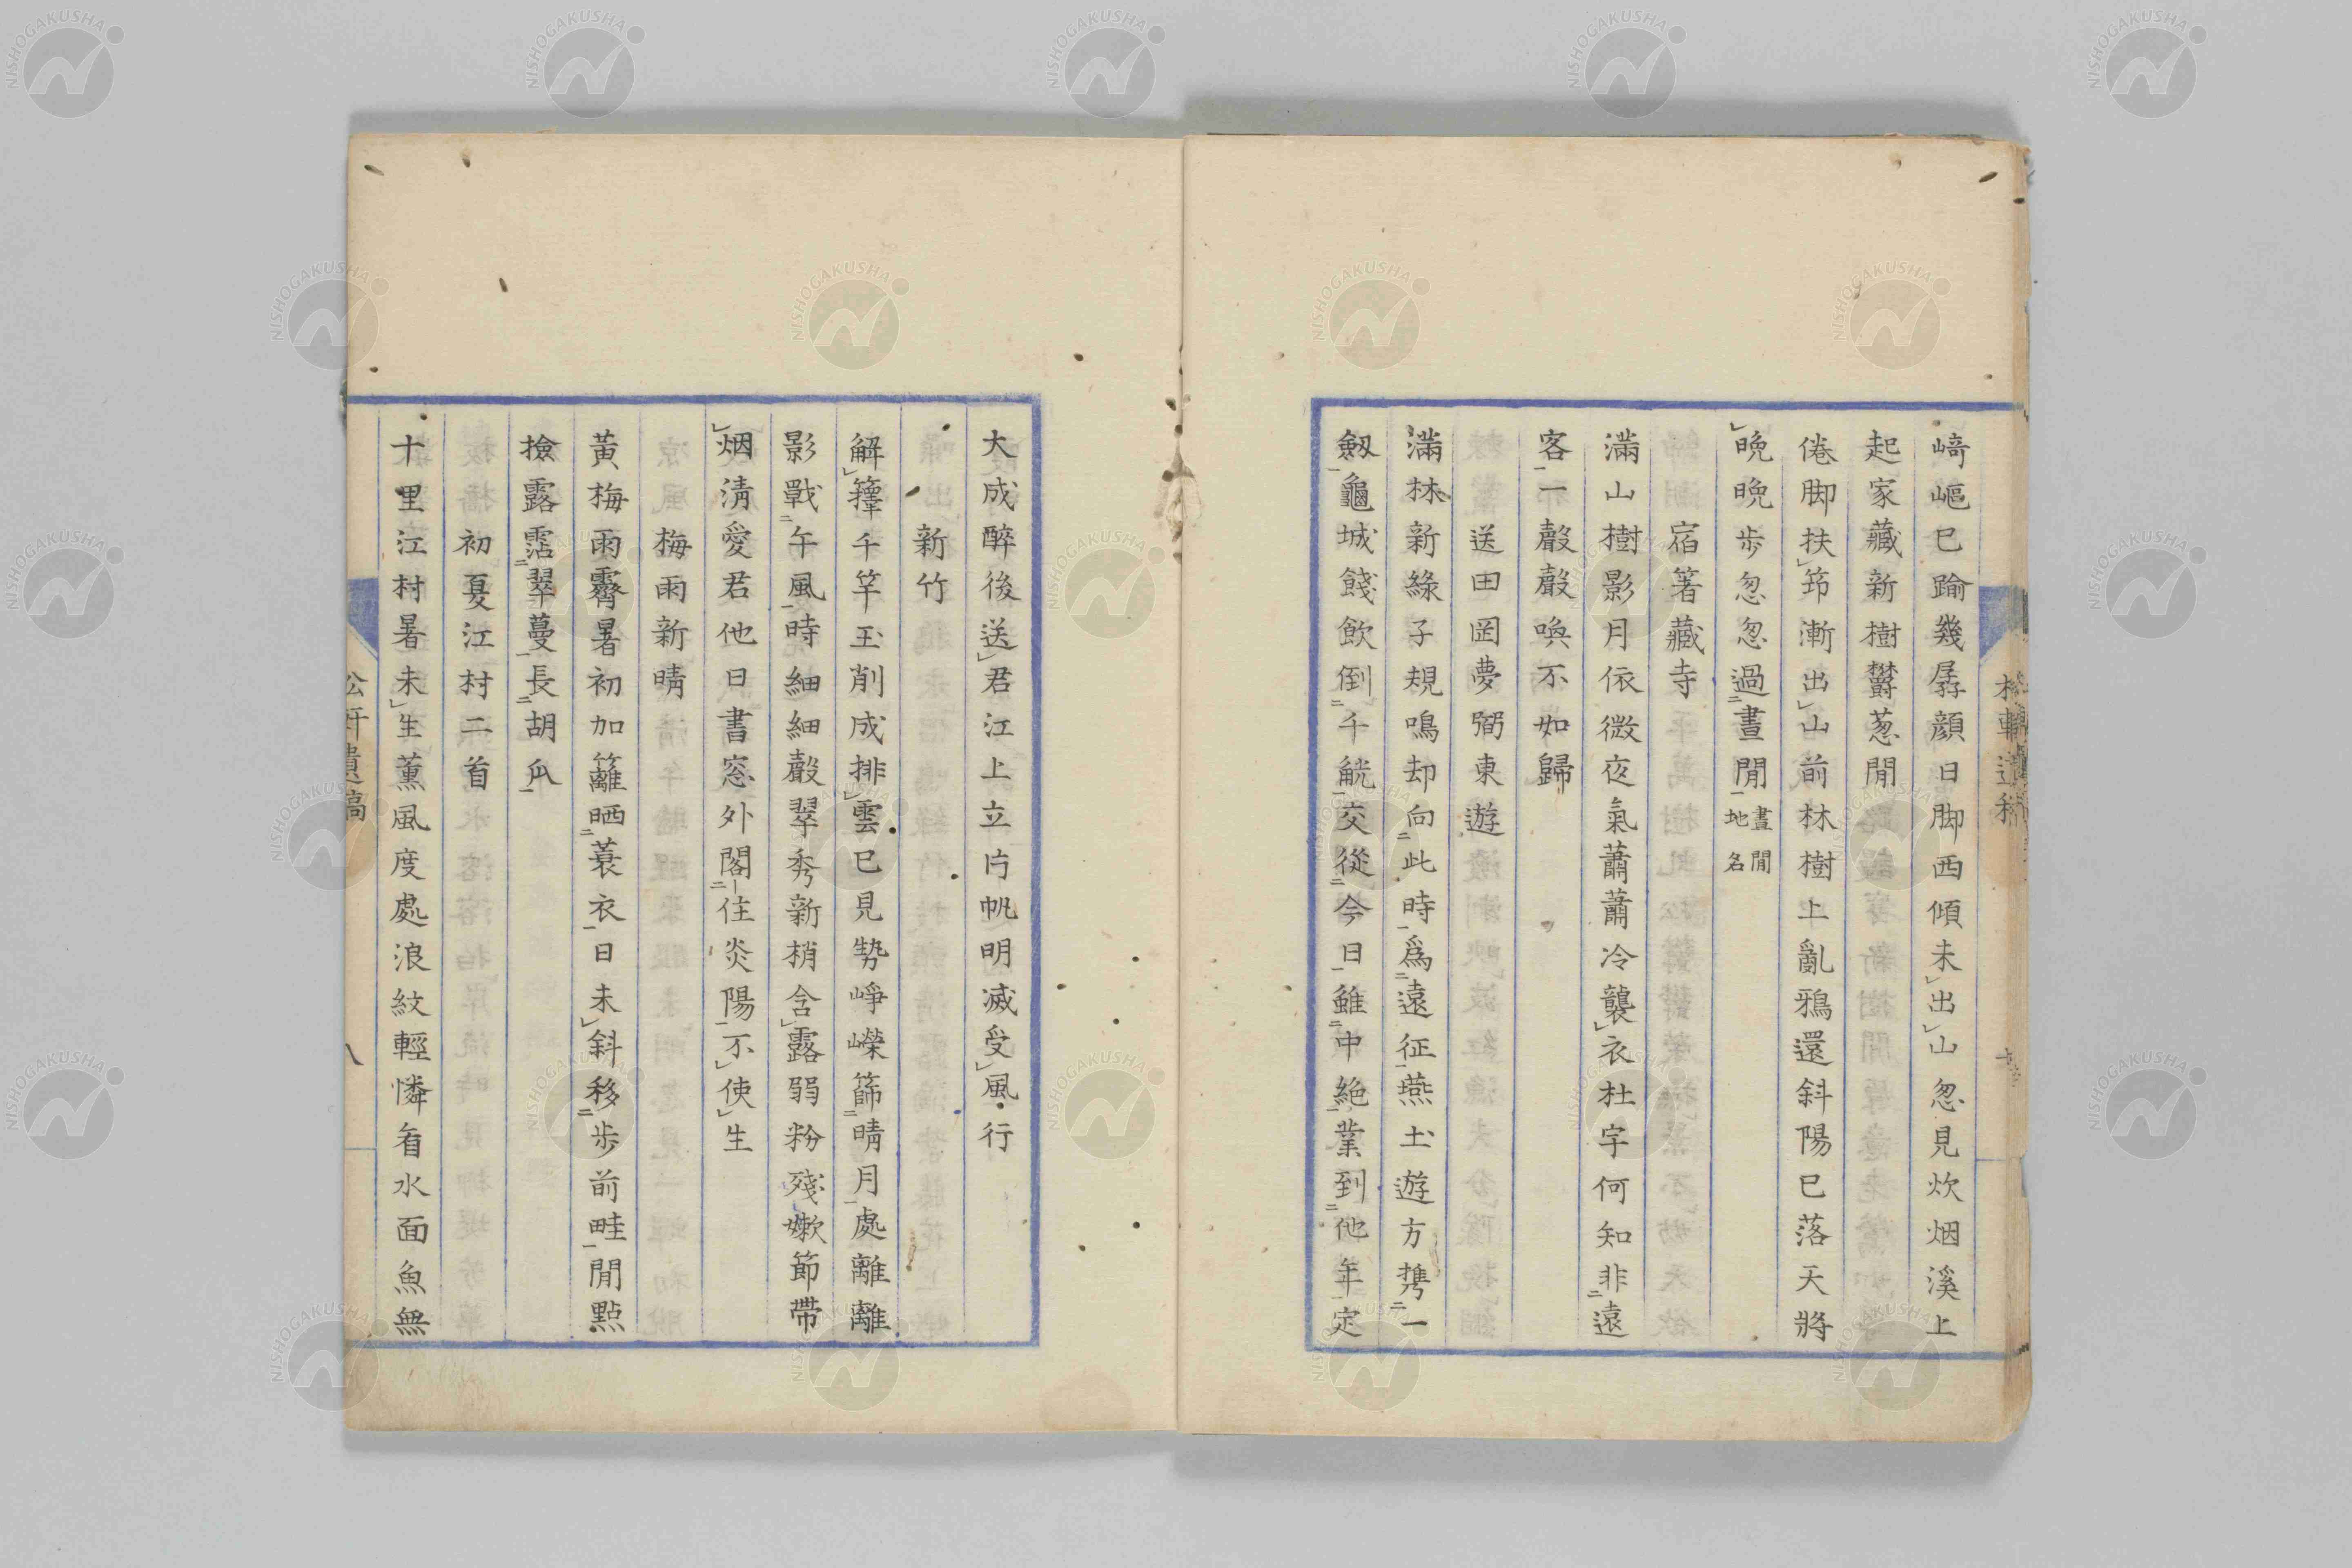 崎嶇已踰幾孱顔日脚西傾未出山忽見炊烟溪上
起家藏新樹欝葱間
倦脚扶筇漸出山前林樹上亂鴉還斜陽已落天將
晩晩歩忽忽過晝間晝間地名
宿箸藏寺
滿山樹影月依微夜氣蕭蕭冷襲衣杜宇何知非遠
客一聲聲喚不如歸
送田岡夢弼東遊
滿林新綠子規鳴却向此時爲遠征燕土遊方携一
劔龜城餞飲倒千觥交從今日雖中絶業到他年定
大成醉後送君江上立片帆明滅受風行
新竹
解籜千竿玉削成排雲已見勢崢嶸篩晴月處離離
影戰午風時細細聲翠秀新梢含露弱粉殘嫩節帶
烟淸愛君他日書窓外閣住炎陽不使生
梅雨新晴
黃梅雨霽暑初加籬晒蓑衣日未斜移歩前畦閒點
撿露霑翠蔓長胡瓜
初夏江村二首
十里江村暑未生薰風度處浪紋輕憐看水面魚無
松軒遺稿
八